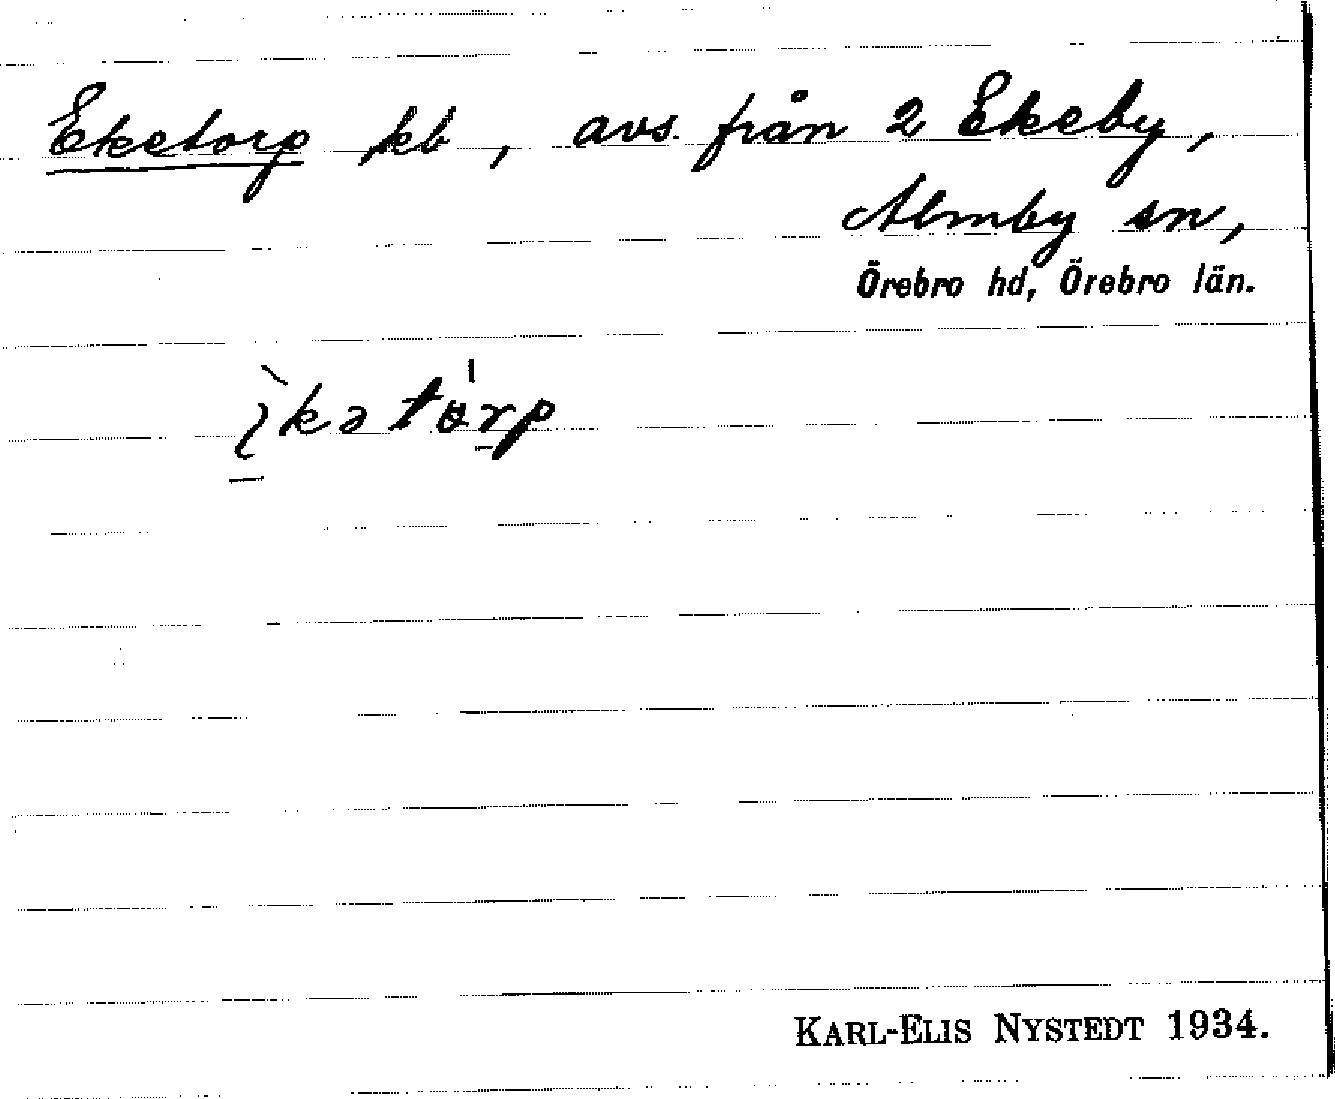 Eketorp kb, avs. från 2 Ekeby,
Almby sn,
Örebro hd, Örebro län.
KARL-ELIS NYSTEDT 1934.